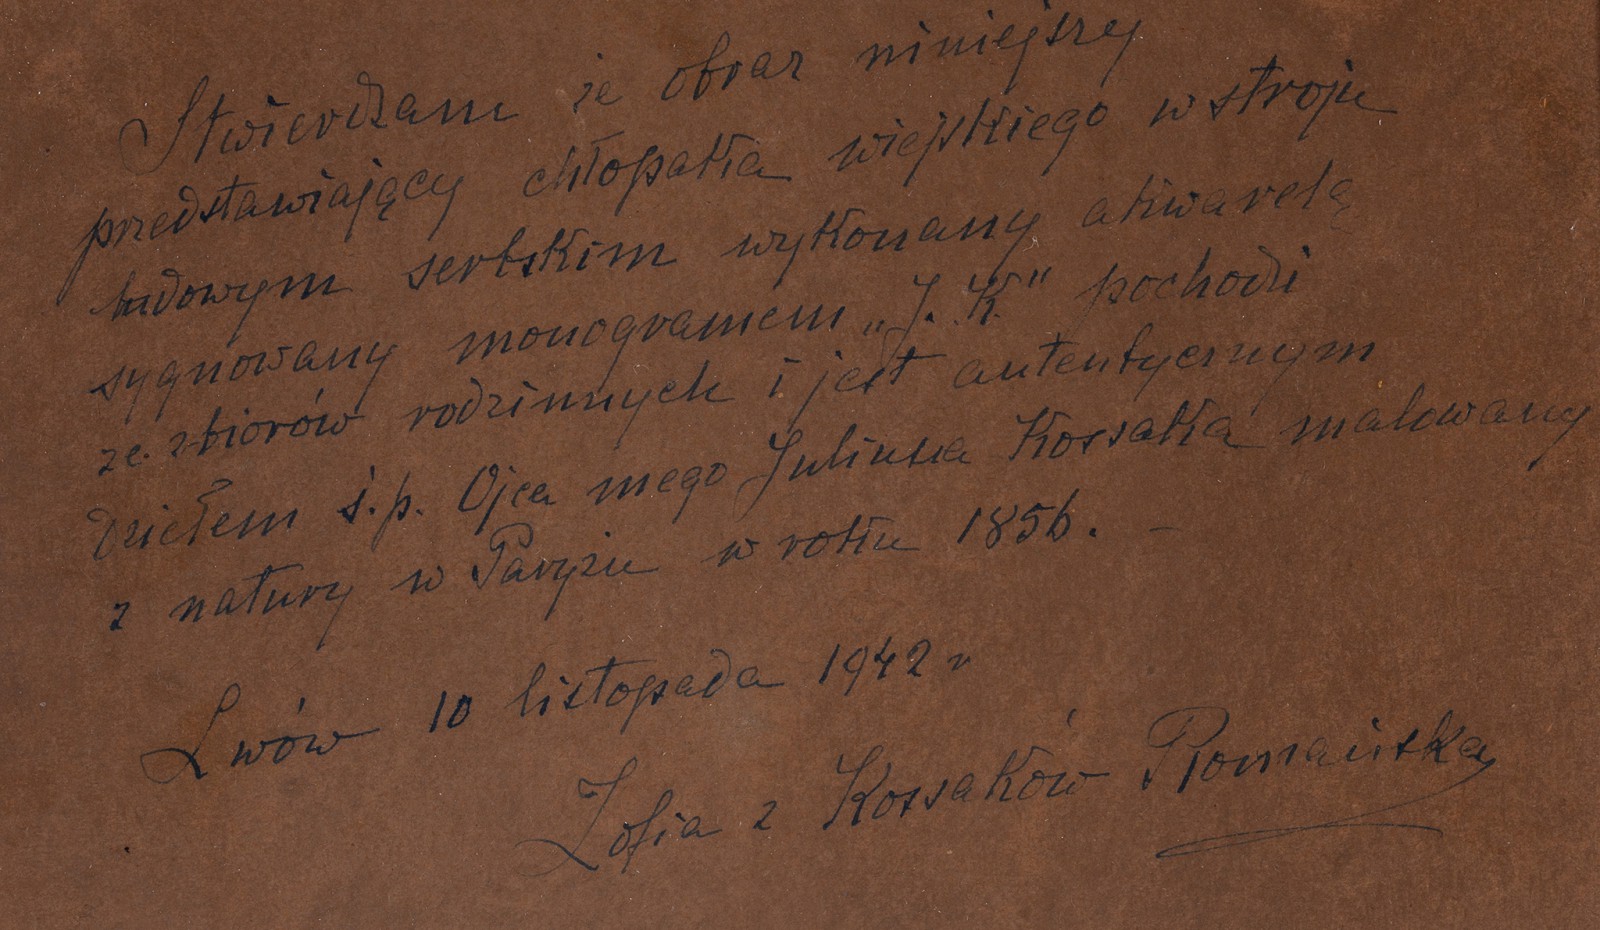 Stwierdzam że obraz niniejszy
przedstawiający chłopaka wiejskiego w stroju
ludowym serbskim wykonany akwarelą
sygnowany monogramem „J. K." pochodzi
ze zbiorów rodzinnych i jest autentycznym
dziełem ś.p. Ojca mego Juliusza Kossaka malowany
z natury w Paryżu w roku 1856. —
Lwów 10 listopada 1942 r
Zofia z Kossaków Romańska